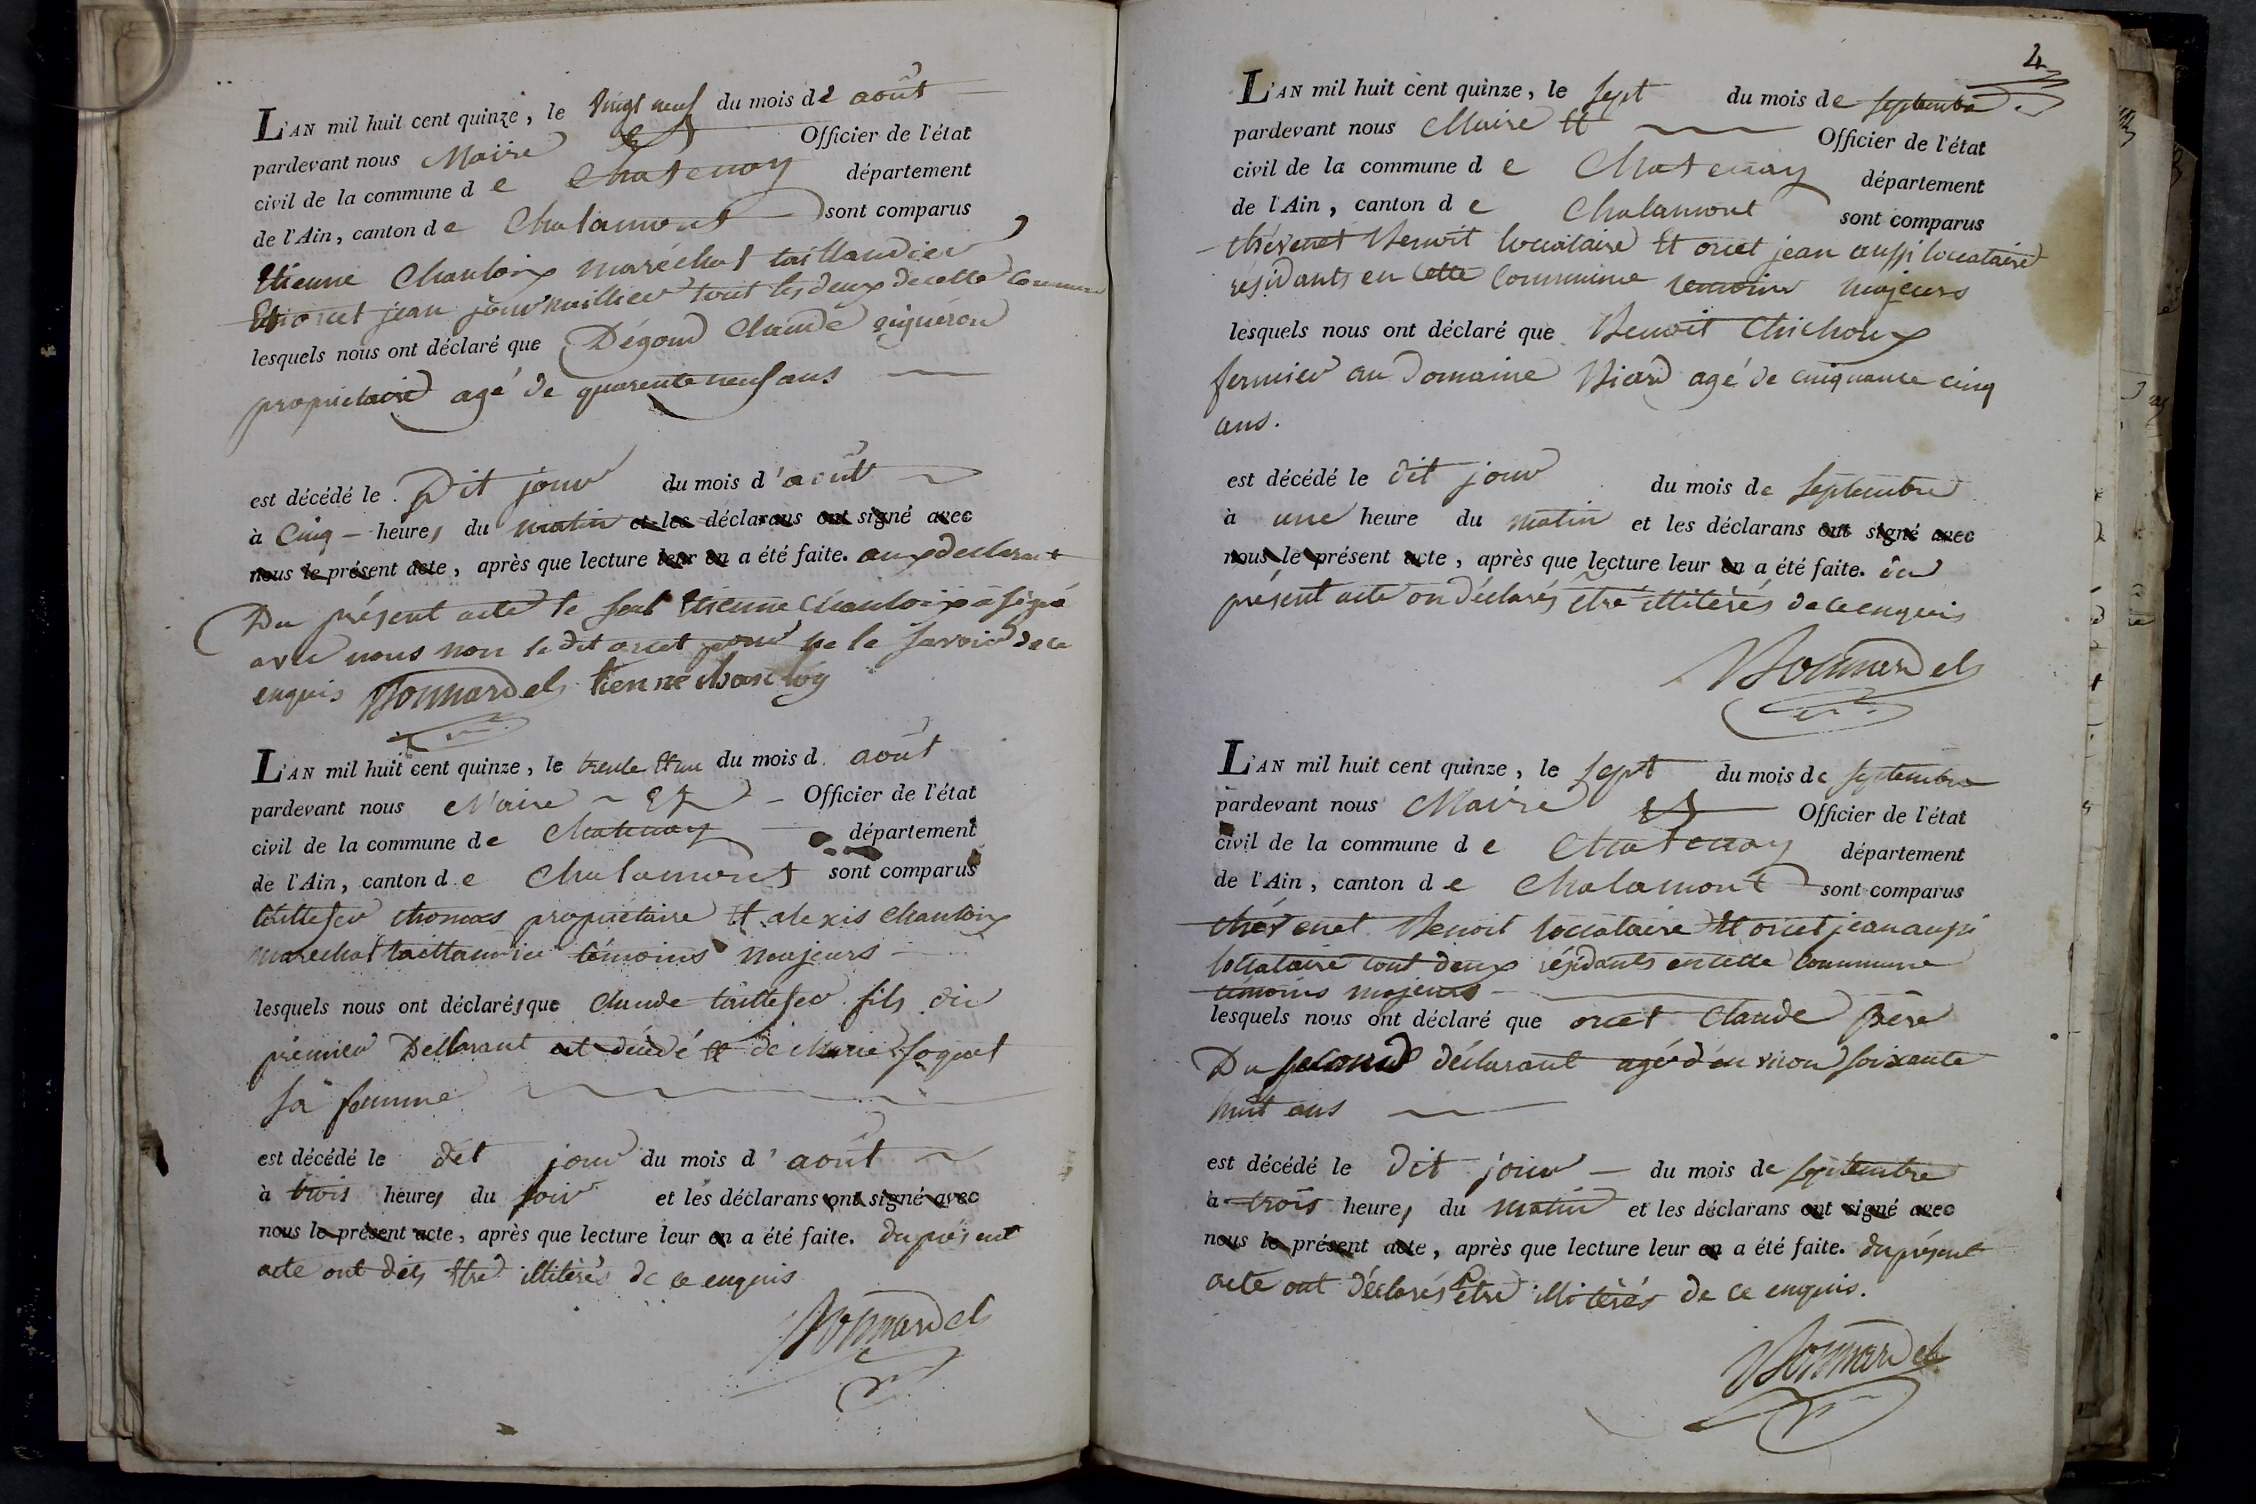 L'AN mil huit cent quinze, le vingt neuf du mois de août
pardevant nous Maire Et Officier de l'état
civil de la commune de Chatenay département
de l'Ain, canton de Chalamont sont comparus
Etienne Chanloix maréchal taillandier
Et orcet jean journaillier tout les deux de cette Commune
lesquels nous ont déclaré que Dégoud Claude
propriétaire agé de quarente neuf ans
est décédé le Dit jour du mois d'août
à Cinq heures du matin et les déclarans ont signé avec
nous le présent acte, après que lecture leur en a été faite. aux declarant
Du présent acte le seul Etienne Chanloix a signé
avec nous non le dit orcet pour ne le savoir de ce
enquis Bonnardel tienne
L'AN mil huit cent quinze, le trente Et un du mois d. août
pardevant nous Maire Et Officier de l'état
civil de la commune de Chatenay département
de l'Ain, canton de Chalamont sont comparus
taillefer thomas propriétaire Et alexis Chanloix
marechal taillandier témoins majeurs
lesquels nous ont déclarés que Claude taillefer fils du
prémier Déllarant et de Marie
sa femme
est décédé le dit jour du mois d'août
à trois heures du soir et les déclarans ont signé avec
nous le présent acte, après que lecture leur en a été faite. du présent
acte ont dits Etre illitérés de ce enquis
Bonnardel
4
L'AN mil huit cent quinze, le sept du mois de septembre
pardevant nous Maire Et Officier de l'état
civil de la commune de Chatenay département
de l'Ain, canton de Chalamont sont comparus
thévenet Benoit locataire Et orcet jean aussi locataire
résidants en Cette Commune témoins majeurs
lesquels nous ont déclaré que Benoit Chichoux
fermier au Domaine Biard agé de cinquante cinq
ans.
est décédé le dit jour du mois de septembre
à une heure du matin et les déclarans ont signé avec
nous le présent acte, après que lecture leur en a été faite. du
présent acte on déclarés être illitérés de ce enquis
Bonnardel
L'AN mil huit cent quinze, le sept du mois de septembre
pardevant nous Maire Et Officier de l'état
civil de la commune de Chatenay département
de l'Ain, canton de Chalamont sont comparus
thévenet Benoit locataire Et orcet jean aussi
locataire tout deux résidants en cette Commune
témoins majeurs
lesquels nous ont déclaré que orcet Claude frère
Du second déclarant agé d'environ soixante
huit ans
est décédé le Dit jour du mois de septembre
à trois heures du matin et les déclarans ont signé avec
nous le présent acte, après que lecture leur en a été faite. du présent
acte ont déclarés être illitérés de ce enquis.
Bonnardel